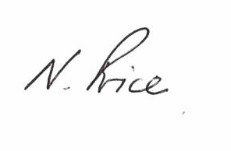 N. Price